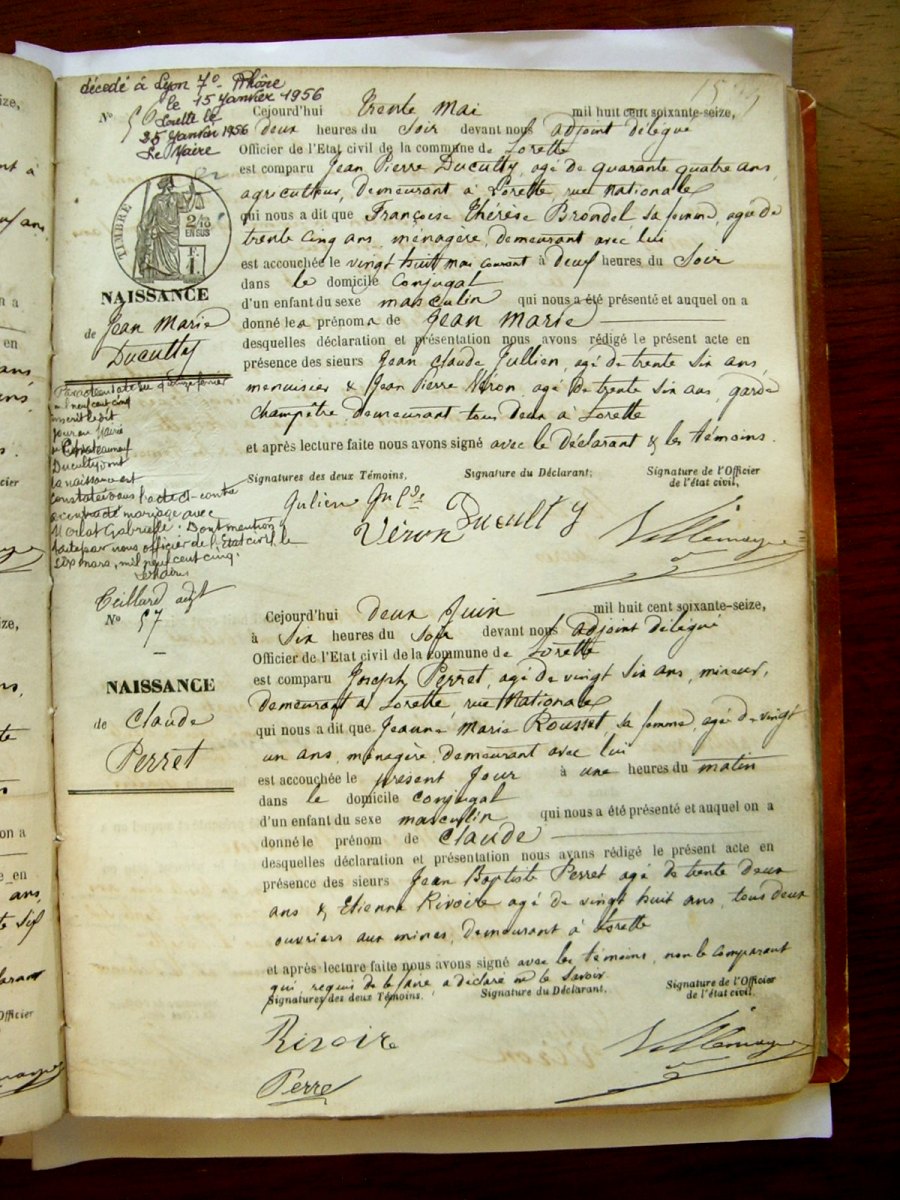 décédé à Lyon 7º Rhône
le 15 Janvier 1956
Lorette le
25 Janvier 1956
Le Maire
Nº 56
TIMBRE
2/10
EN SUS
F.
1.
NAISSANCE
de Jean Marie
Ducultty
mil neuf cent cinq
inscrit le dit
jour en Mairie
de Chateauneuf
Ducultty dont
la naissance est
constatée dans l'acte ci-contre
a contracté mariage avec
Gabrielle. Dont mention
faite par nous officier de l'Etat civil, le
six mars, mil neuf cent cinq.
Teillard adjt
Cejourd'hui trente Mai mil huit cent soixante-seize,
deux heures du Soir devant nous adjoint délégué
Officier de l'Etat civil de la commune de Lorette
est comparu Jean Pierre Ducultty, agé de quarante quatre ans,
agriculteur, demeurant à Lorette, rue Nationale
qui nous a dit que Françoise Thérèse Brondel sa femme, agée de
trente cinq ans, ménagère, demeurant avec lui
est accouchée le vingt huit mai courant à deux heures du Soir
dans le domicile Conjugal
d'un enfant du sexe masculin qui nous a été présenté et auquel on a
donné les prénoms de Jean Marie
desquelles déclaration et présentation nous avons rédigé le présent acte en
présence des sieurs Jean Claude Jullien, agé de trente six ans,
menuisier & Jean Pierre Véron agé de trente six ans, garde
champêtre demeurant tous deux à Lorette
et après lecture faite nous avons signé avec le déclarant & les témoins.
Signatures des deux Témoins. Signature du Déclarant. Signature de l'Officier
de l'état civil,
Véron Ducultty Villemagne
Nº 57
NAISSANCE
de Claude
Perret
Cejourd'hui deux Juin mil huit cent soixante-seize,
à Six heures du Soir devant nous adjoint délégué
Officier de l'Etat civil de la commune de Lorette
est comparu Joseph Perret, agé de vingt six ans, mineur,
demeurant à Lorette, rue Nationale
qui nous a dit que Jeanne Marie Rousset, sa femme, agée de vingt
un ans, ménagère, demeurant avec lui
est accouchée le présent Jour à une heures du matin
dans le domicile conjugal
d'un enfant du sexe masculin qui nous a été présenté et auquel on a
donné le prénom de Claude
desquelles déclaration et présentation nous avons rédigé le présent acte en
présence des sieurs Jean Baptiste Perret agé de trente deux
ans & Etienne Rivoire agé de vingt huit ans, tous deux
ouvriers aux mines, demeurant à Lorette
et après lecture faite nous avons signé avec les témoins, non le comparant
qui, requis de le faire a déclaré ne le Savoir
Signatures des deux Témoins. Signature du Déclarant. Signature de l'Officier
de l'état civil,
Rivoire Villemagne
Perret